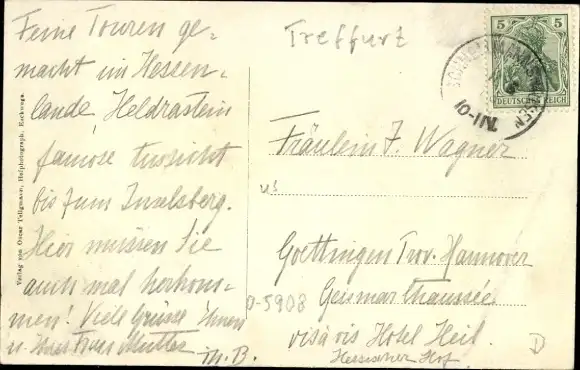 Feine Touren ge-
macht im Hessen-
lande Heldrastein
famose Aussicht
bis zum Inselsberg.
Hier müssen Sie
auch mal herkom-
men! Viele Grüsse Ihnen
u. Ihrer Frau Mutter
M. B.
Verlag von Oscar Tellgmann, Hofphotograph, Eschwege.
Treffurt
5 5
DEUTSCHES REICH
Fräulein F. Wagner
Goettingen Prov. Hannover
Geismar Chaussée
vis à vis Hotel Heil.
Hessischer Hof
D-5908
D